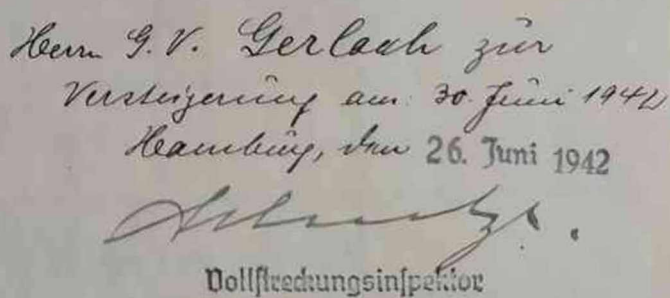 Herrn G. V. Gerlach zur
Versteigerung am 30. Juni 1942
Hamburg, den 26. Juni 1942
Vollstreckungsinspektor